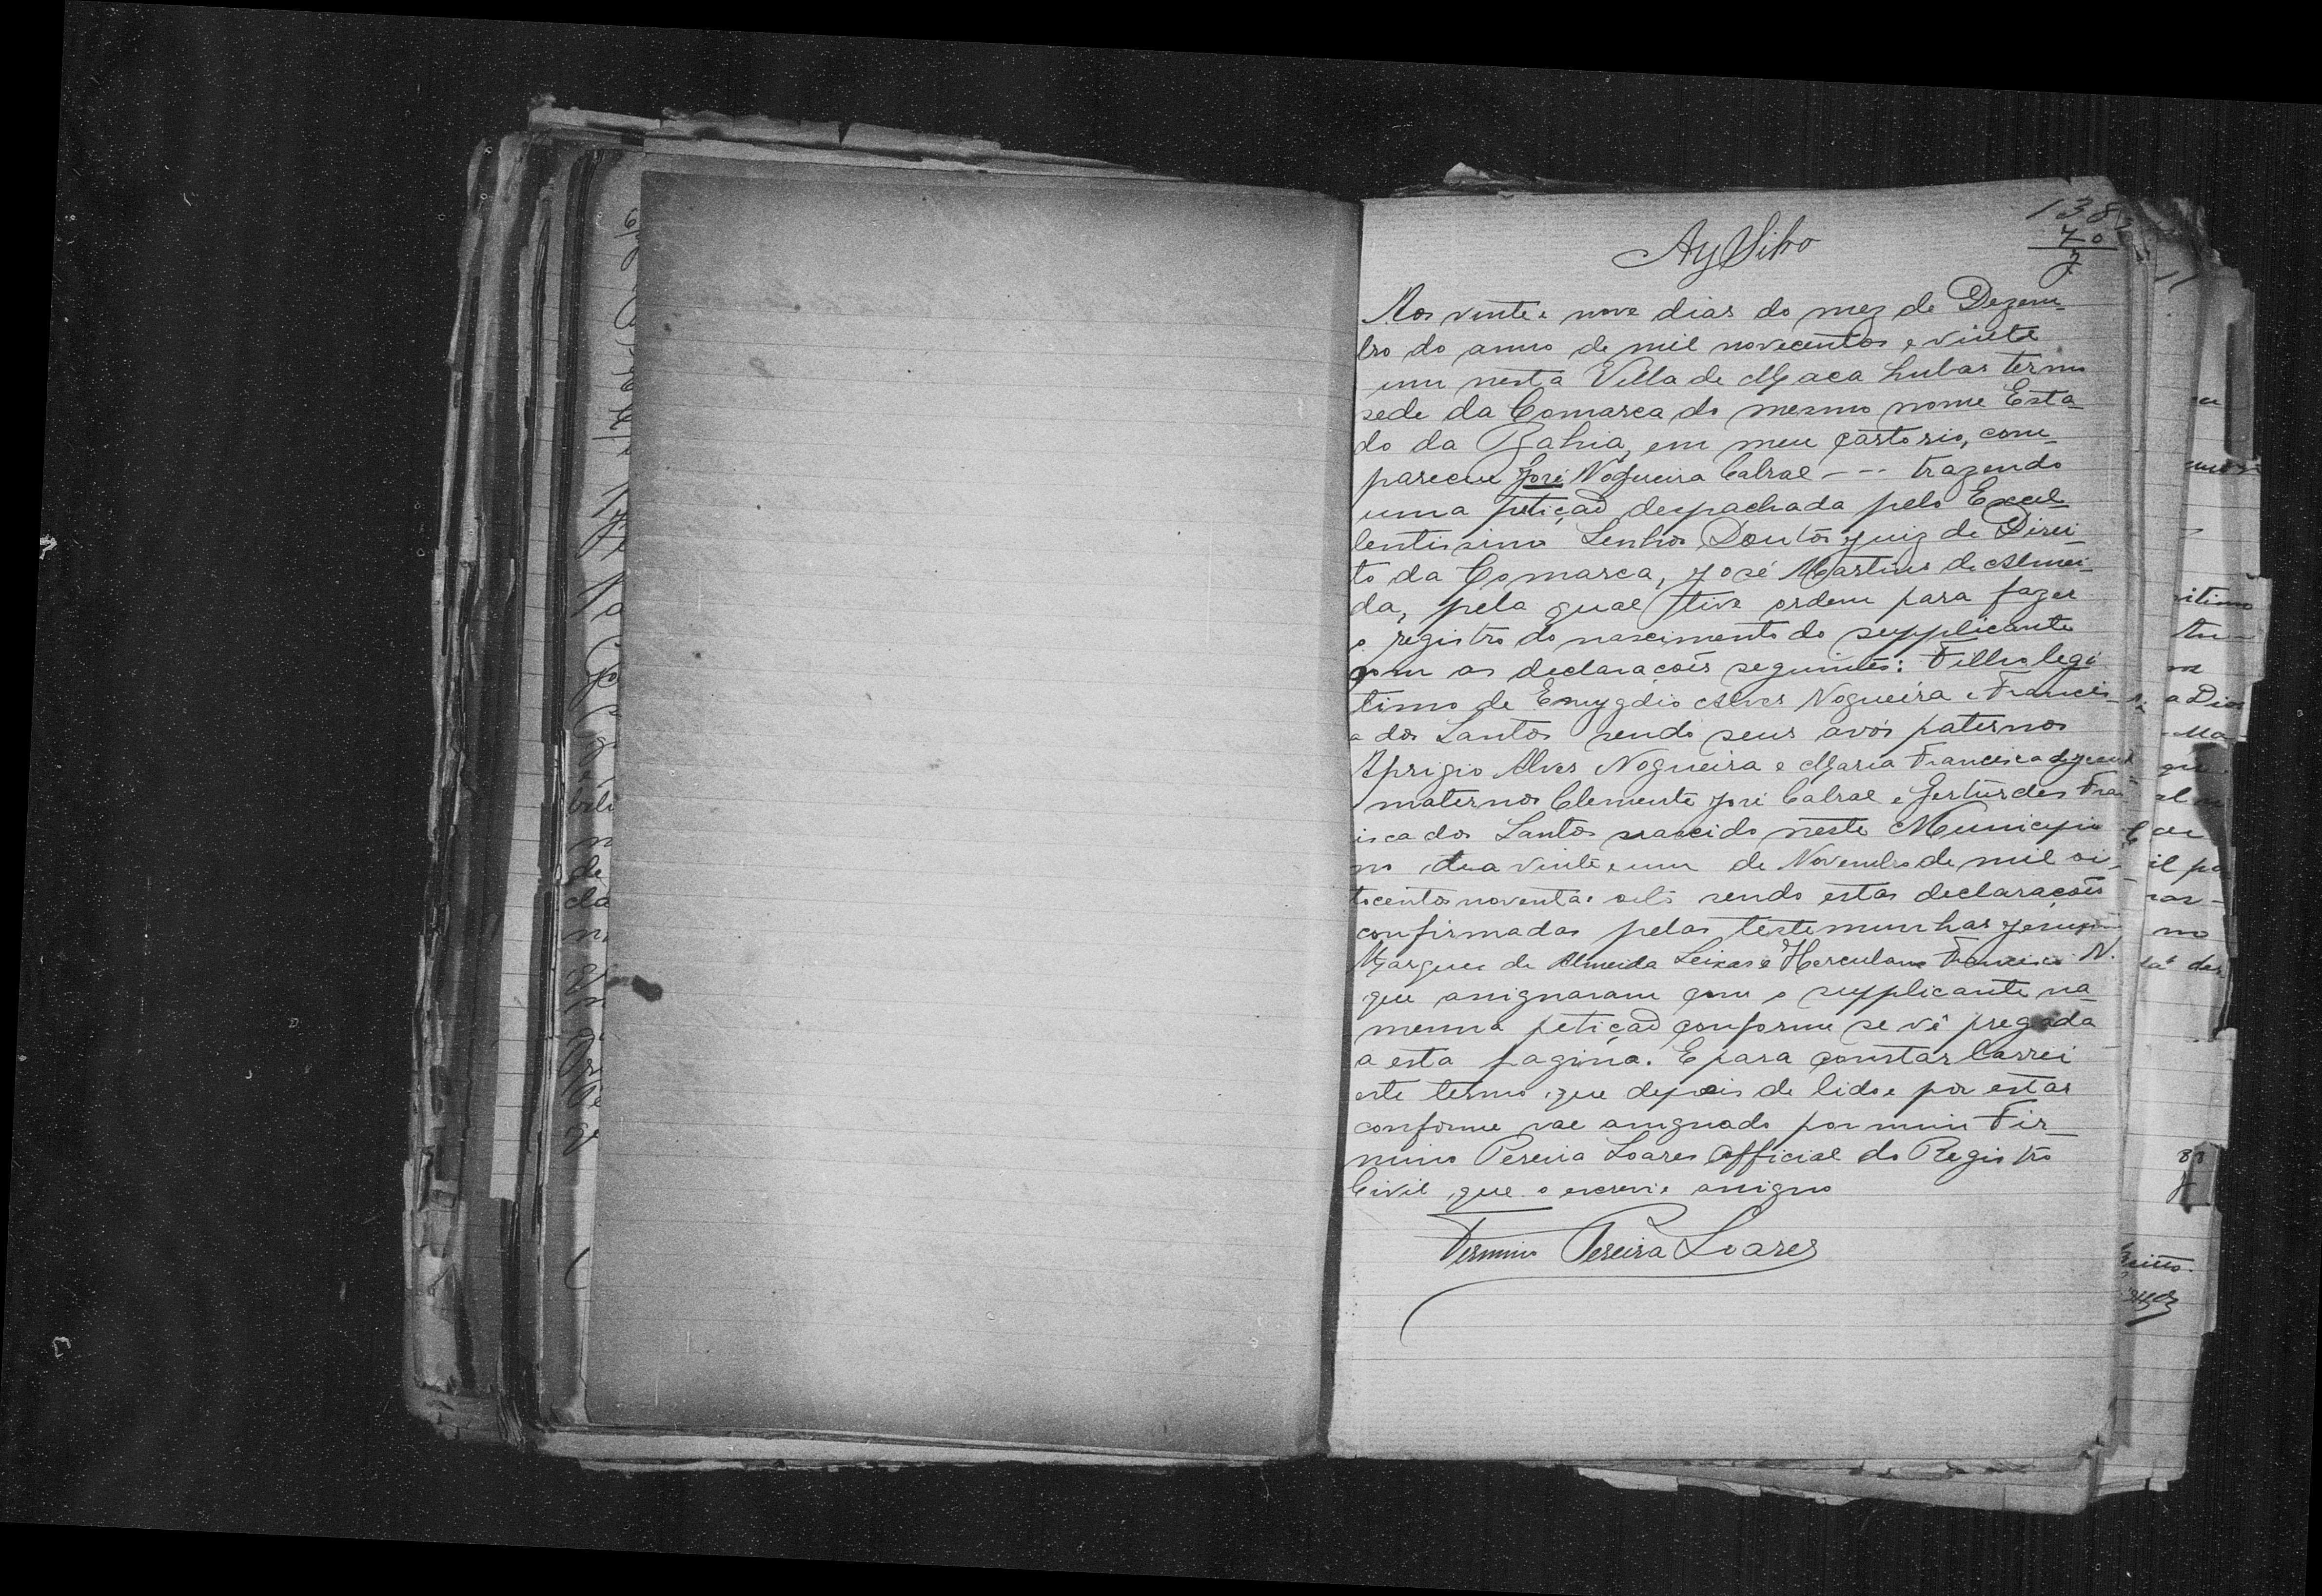 138
70
AySilva
Aos vinte e nove dias do mez de Dezem-
bro do anno de mil novecentos e vinte
um nesta Villa de Macahubas termo
sede da Comarca do mesmo nome Esta-
do da Bahia, em meu cartorio, com-
pareceu José Nogueira Cabral --- trazendo
uma petição despachada pelo Excel-
lentissimo Senhor Doutor Juiz de Direi-
to da Comarca, José Martins de Almei-
da, pela qual tive ordem para fazer
o registro do nascimento do supplicante
com as declaracoēs seguintes: Filho legi
timo de Emygdio Alves Nogueira e Francis-
a dos Santos sendo seus avós paternos
Aprigio Alves Nogueira e Maria Francisca de
maternos Clemente José Cabral e Gerturdes Fran
isca dos Santos nascido neste Municipio
no dia vinte e um de Novembro de mil oi-
tocentos noventa e oito sendo estas declarações
confirmadas pelas testemunhas
Marques de Almeida Seixas e Herculano Francisco N.
que assignaram com o supplicante na
mesma petição conforme se vê pregada
a esta pagina. E para constar lavrei
este termo que depois de lido e por estar
conforme vae assignado por mim Fir-
mino Pereira Soares Official do Registro
Civil que o escrevi e assigno
Firmino Pereira Soares